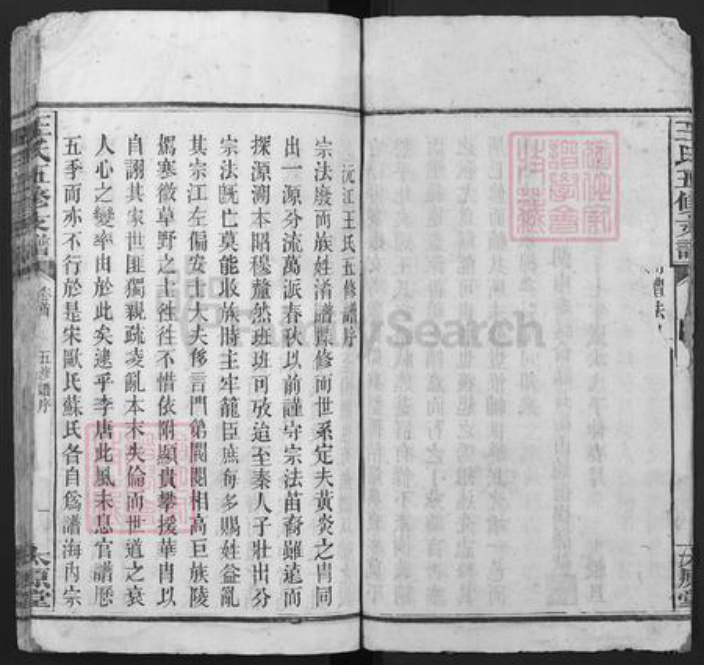 王氏五修支譜
太原堂
沅江王氏五修譜序
宗法廢而族姓淆譜牒修而世系定夫黃炎之胄同
出一源分流萬派春秋以前謹守宗法苗裔雖遠而
探源溯本昭穆釐然班班可攷迨至秦人子壯出分
宗法旣亡莫能收族時主牢籠臣庶每多賜姓益亂
其宗江左偏安士大夫侈言門第閥閱相高巨族陵
寒微草野之士徃徃不惜依附顯貴攀援華胄以
自詡其家世匪獨親疏凌亂本末失倫而世道之衰
人心之變率由於此矣逮乎李唐此風未息官譜歷
五季而亦不行於是宋歐氏蘇氏各自爲譜海內宗
王氏五修支譜
卷首
五修譜序
一
太原堂
FamilySearch